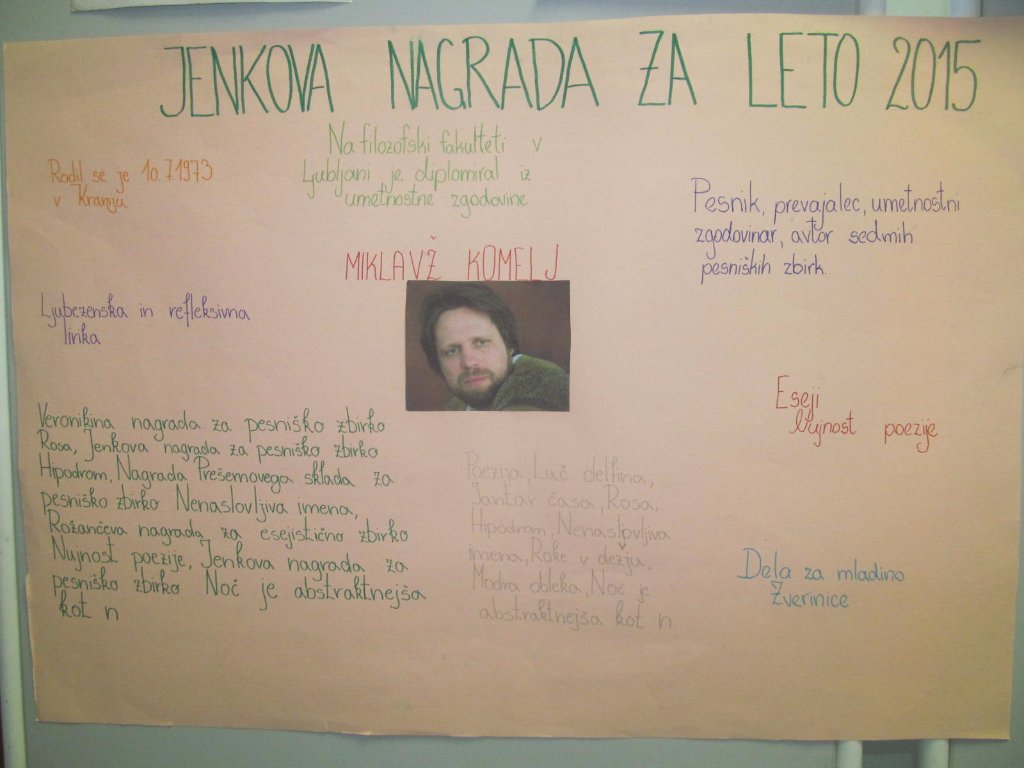 JENKOVA NAGRADA ZA LETO 2015
Na filozofski fakulteti v
Ljubljani je diplomiral iz
umetnostne zgodovine
Rodil se je 10.7.1973
v Kranju
Pesnik, prevajalec, umetnostni
zgodovinar, avtor sedmih
pesniških zbirk.
MIKLAVŽ KOMELJ
Ljubezenska in refleksivna
lirika
Eseji
Nujnost poezije
Veronikina nagrada za pesniško zbirko
Rosa, Jenkova nagrada za pesniško zbirko
Hipodrom, Nagrada Prešernovega sklada za
pesniško zbirko Nenaslovljiva imena,
Rožančeva nagrada za esejistično zbirko
Nujnost poezije, Jenkova nagrada za
pesniško zbirko Noč je abstraktnejša
kot n
Poezija, Luč delfina,
Jantar časa, Rosa,
Hipodrom, Nenaslovljiva
imena, Roke v dežju,
Modra obleka, Noč je
abstraktnejša kot n
Dela za mladino
Zverinice